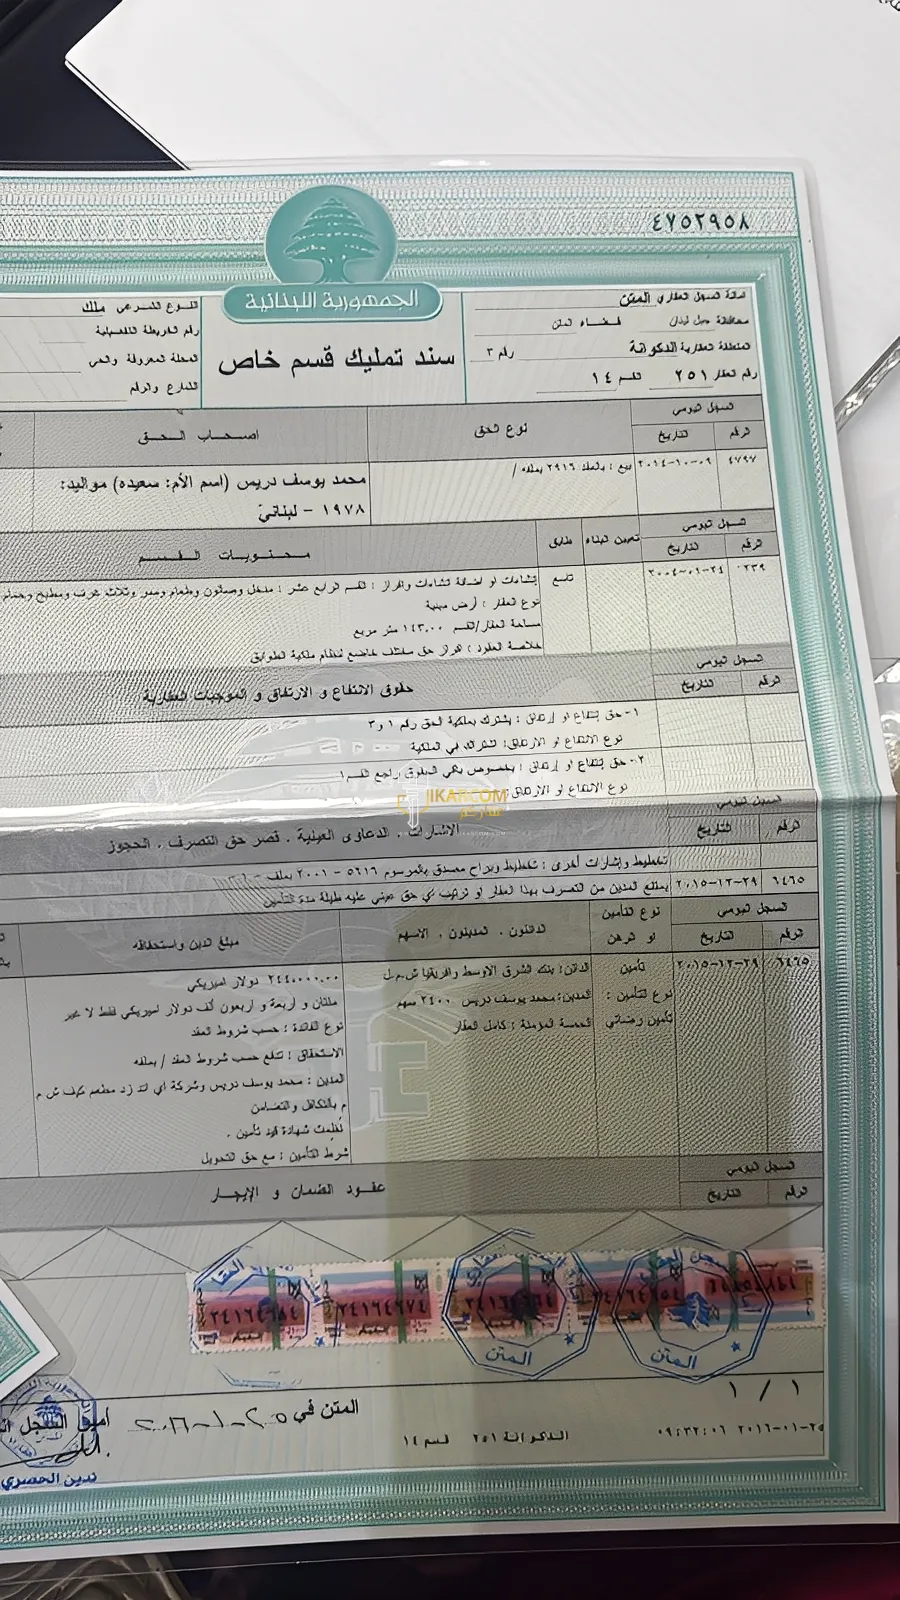 ٤٧٥٢٩٥٨
الجمهورية اللبنانية
سند تمليك قسم خاص
امانة السجل العقاري المتن
محافظة جبل لبنان قضاء المتن
المنطقة العقارية الدكوانة رقم ٣
رقم العقار ٢٥١ القسم ١٤
النوع الشرعي ملك
رقم الخريطة التفصيلية
المحلة المعروفة والحي
الشارع والرقم
السجل اليومي
الرقم التاريخ نوع الحق اصحاب الحق
٤٧٩٧ ٢٠١٤-١٠-٠٩ بيع : بالعقد ٢٩١٦ بملفه /
محمد يوسف دريس (اسم الأم: سعيده) مواليد:
١٩٧٨ - لبناني
السجل اليومي
الرقم التاريخ تعيين البناء طابق محتويات القسم
٢٣٩ ٢٠٠٤-٠١-٢٤ تاسع
إنشاءات او اضافة انشاءات وافراز : القسم الرابع عشر : مدخل وصالون وطعام وممر وثلاث غرف ومطبخ وحمام
نوع العقار : أرض مبنية
مساحة العقار/القسم ١٤٣,٠٠ متر مربع
خلاصة العقود : افراز حق مختلف خاضع لنظام ملكية الطوابق
السجل اليومي
الرقم التاريخ حقوق الانتفاع و الارتفاق و الموجبات العقارية
١- حق إنتفاع او إرتفاق : يشترك بملكية الحق رقم ١ و ٣
نوع الانتفاع او الارتفاق: اشتراك في الملكية
٢- حق إنتفاع او إرتفاق : بخصوص باقي الحقوق راجع القسم ١
نوع الانتفاع او الارتفاق:
JIKARCOM
السجل اليومي
الرقم التاريخ الاشارات . الدعاوى العينية . قصر حق التصرف . الحجوز
تخطيط وإشارات أخرى : تخطيط وبراح مصدق بالمرسوم ٥٦١٦ - ٢٠٠١ بملف
٦٤٦٥ ٢٠١٥-١٢-٢٩ يمتنع المدين من التصرف بهذا العقار او ترتيب اي حق عيني عليه طيلة مدة التأمين
السجل اليومي
الرقم التاريخ نوع التأمين او الرهن الدائنون . المدينون . الاسهم مبلغ الدين واستحقاقه
٦٤٦٥ ٢٠١٥-١٢-٢٩
تأمين
نوع التأمين :
تأمين رضائي
الدائن: بنك الشرق الاوسط وافريقيا ش.م.ل
المدين: محمد يوسف دريس ٢٤٠٠ سهم
الحصة المؤمنة : كامل العقار
٢٤٤٠٠٠,٠٠ دولار اميريكي
مئتان و أربعة و أربعون ألف دولار اميريكي فقط لا غير
نوع الفائدة : حسب شروط العقد
الاستحقاق : تدفع حسب شروط العقد / بملفه
المدين : محمد يوسف دريس وشركة أي اند زد مطعم كيف ش م
م بالتكافل والتضامن
نُظمت شهادة قيد تأمين .
شرط التأمين : مع حق التحويل
السجل اليومي
الرقم التاريخ عقود الضمان و الإيجار
المتن
المتن
١ / ١
المتن في
٢٠١٦-٠١-٢٥ ٠٩:٤٢:٠٦
الدكوانة ٢٥١ قسم ١٤
أمين السجل
ندين الحصري